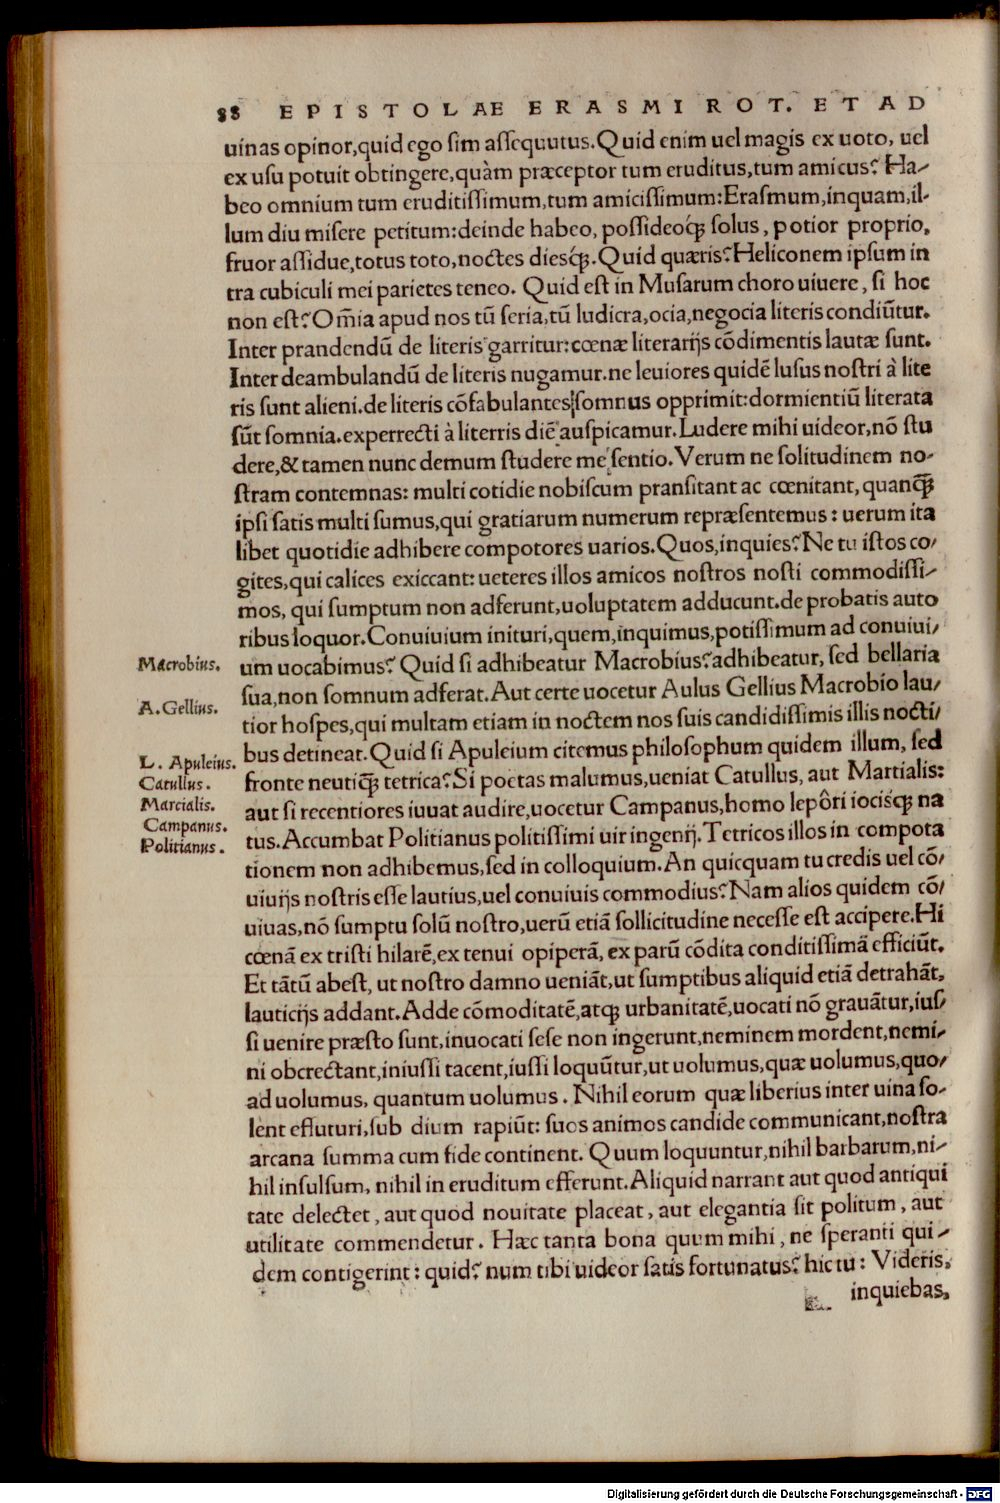 88 EPISTOLAE ERASMI ROT. ET AD
uinas opinor,quid ego sim assequutus.Quid enim uel magis ex uoto, uel
ex usu potuit obtingere,quàm præceptor tum eruditus,tum amicus? Ha-
beo omnium tum eruditissimum,tum amicissimum:Erasmum,inquam,il-
lum diu misere petitum:deinde habeo, possideoq́ꝫ solus, potior proprio,
fruor assidue,totus toto,noctes diesq́ꝫ.Quid quæris? Heliconem ipsum in
tra cubiculi mei parietes teneo. Quid est in Musarum choro uiuere, si hoc
non est? Om̃ia apud nos tũ seria,tũ ludicra,ocia,negocia literis condiũtur.
Inter prandendũ de literis garritur:cœnæ literarijs cõdimentis lautæ sunt.
Inter deambulandũ de literis nugamur.ne leuiores quidẽ lusus nostri à lite
ris sunt alieni.de literis cõfabulantes somnus opprimit:dormientiũ literata
sũt somnia.experrecti à literris diẽ auspicamur.Ludere mihi uideor,nõ stu
dere,& tamen nunc demum studere me sentio.Verum ne solitudinem no-
stram contemnas: multi cotidie nobiscum pransitant ac cœnitant, quanq̃ꝫ
ipsi satis multi sumus,qui gratiarum numerum repræsentemus: uerum ita
libet quotidie adhibere compotores uarios.Quos,inquies? Ne tu istos co-
gites,qui calices exiccant: ueteres illos amicos nostros nosti commodissi-
mos, qui sumptum non adferunt,uoluptatem adducunt.de probatis auto
ribus loquor.Conuiuium inituri,quem,inquimus,potissimum ad conuiui-
Macrobius. um uocabimus? Quid si adhibeatur Macrobius? adhibeatur, sed bellaria
sua,non somnum adferat.Aut certe uocetur Aulus Gellius Macrobio lau-
A.Gellius. tior hospes,qui multam etiam in noctem nos suis candidissimis illis nocti-
L. Apuleius. bus detineat.Quid si Apuleium citemus philosophum quidem illum, sed
Catullus. fronte neutiq̃ꝫ tetrica? Si poetas malumus,ueniat Catullus, aut Martialis:
Marcialis. aut si recentiores iuuat audire,uocetur Campanus,homo lepôri iocisq́ꝫ na
Campanus. tus.Accumbat Politianus politissimi uir ingenij.Tetricos illos in compota
Politianus. tionem non adhibemus,sed in colloquium.An quicquam tu credis uel cõ-
uiuijs nostris esse lautius,uel conuiuis commodius? Nam alios quidem cõ-
uiuas,nõ sumptu solũ nostro,uerũ etiã sollicitudine necesse est accipere.Hi
cœnã ex tristi hilarẽ,ex tenui opiperã, ex parũ cõdita conditissimã efficiũt.
Et tãtũ abest, ut nostro damno ueniãt,ut sumptibus aliquid etiã detrahãt,
lauticijs addant.Adde cõmoditatẽ,atqꝫ urbanitatẽ,uocati nõ grauãtur,ius-
si uenire præsto sunt,inuocati sese non ingerunt,neminem mordent,nemi-
ni obtrectant,iniussi tacent,iussi loquũtur,ut uolumus,quæ uolumus,quo-
ad uolumus, quantum uolumus. Nihil eorum quæ liberius inter uina so-
lent effuturi,sub dium rapiũt: suos animos candide communicant,nostra
arcana summa cum fide continent. Quum loquuntur,nihil barbarum,ni-
hil insulsum, nihil in eruditum efferunt.Aliquid narrant aut quod antiqui
tate delectet, aut quod nouitate placeat, aut elegantia sit politum, aut
utilitate commendetur. Hæc tanta bona quum mihi, ne speranti qui-
dem contigerint: quid? num tibi uideor satis fortunatus? hic tu: Videris,
inquiebas,
Digitalisierung gefördert durch die Deutsche Forschungsgemeinschaft - DFG